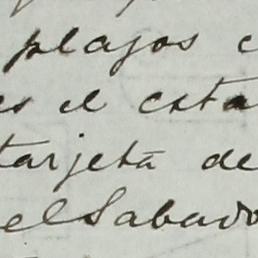 plazos e
es el esta
tarjeta de
el Sabado